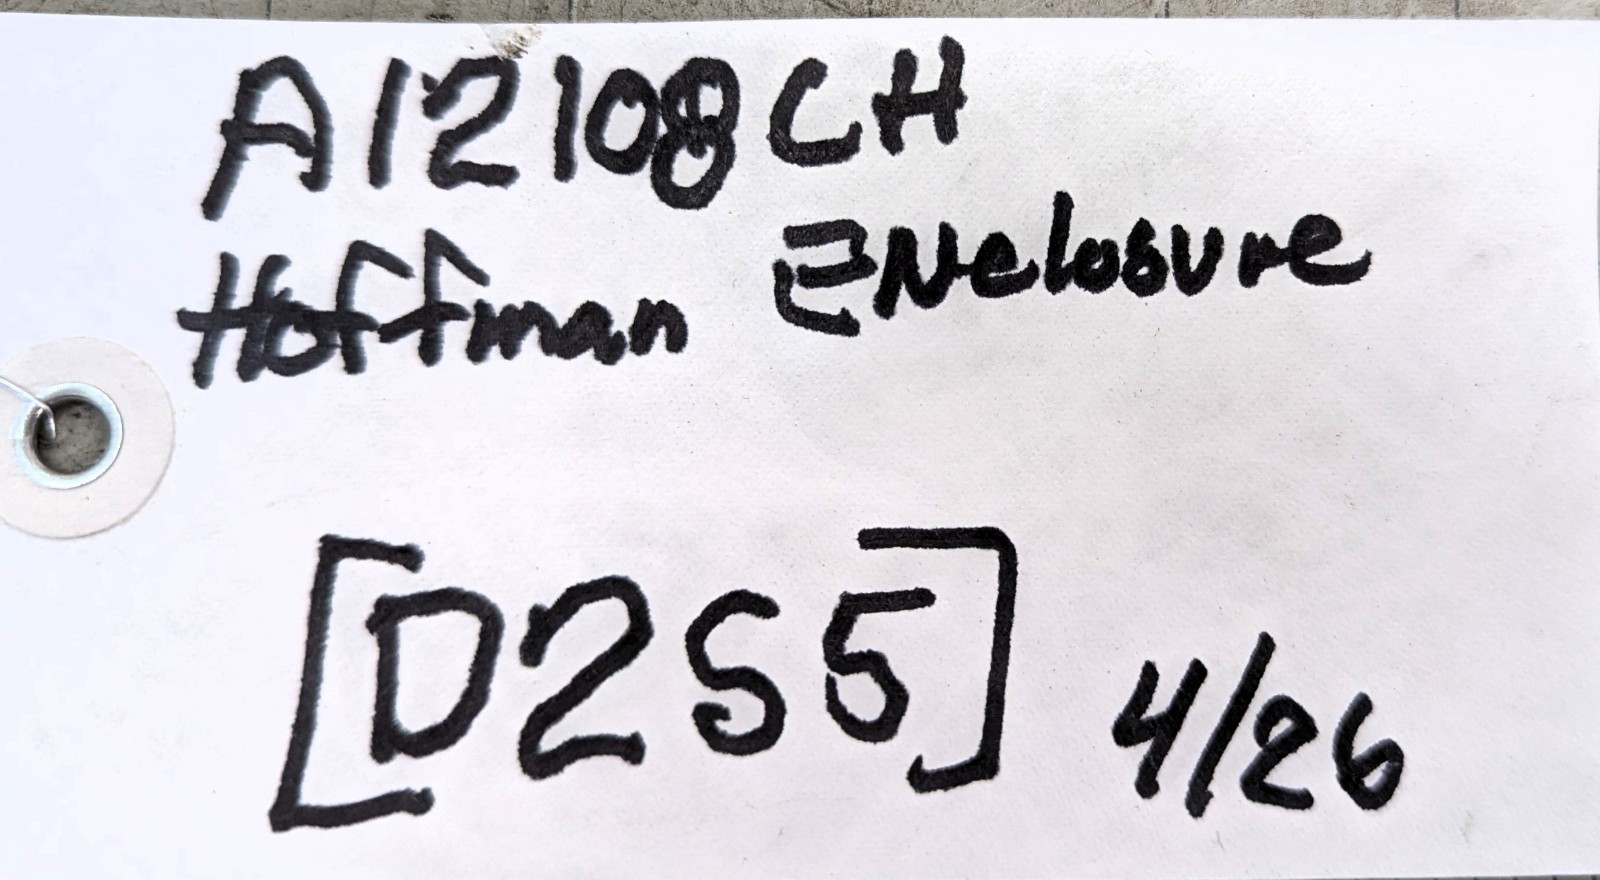 A12108CH
Hoffman Enclosure
[D2S5] 4/26